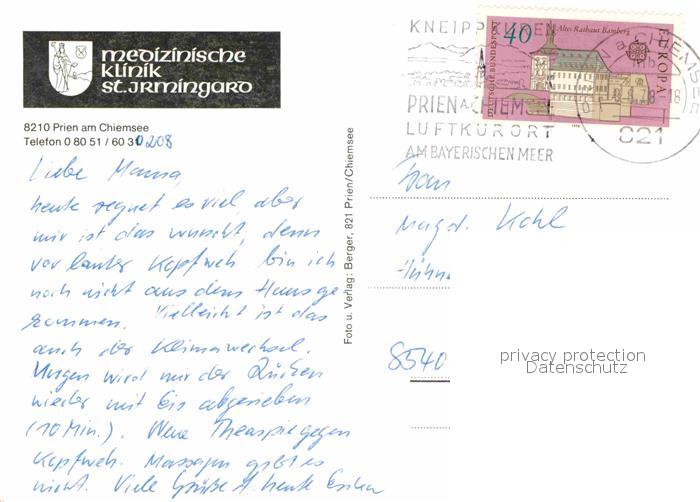 medizinische
klinik
st. irmingard
8210 Prien am Chiemsee
Telefon 0 80 51 / 60 30208
Liebe Mama,
heute regnet es viel, aber
mir ist das wurscht, denn
vor lauter Kopfweh bin ich
noch nicht aus dem Haus ge
kommen. Vielleicht ist das
auch der Klimawechsel.
Morgen wird mir der Rücken
wieder mit Eis abgerieben
(10 Min.). Neue Therapie gegen
Kopfweh. Massagen gibt es
nicht. Viele Grüße
Foto u. Verlag: Berger, 821 Prien/Chiemsee
KNEIPP
PRIEN A CHIEMSEE
LUFTKURORT
AM BAYERISCHEN MEER
40
Altes Rathaus Bamberg
DEUTSCHE BUNDESPOST
EUROPA
CHIEMS
821
Frau
Magd. Kohl
8540
privacy protection
Datenschutz